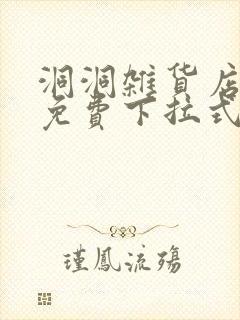 洞洞雜貨店
免費下拉式
瑾鳳流殤